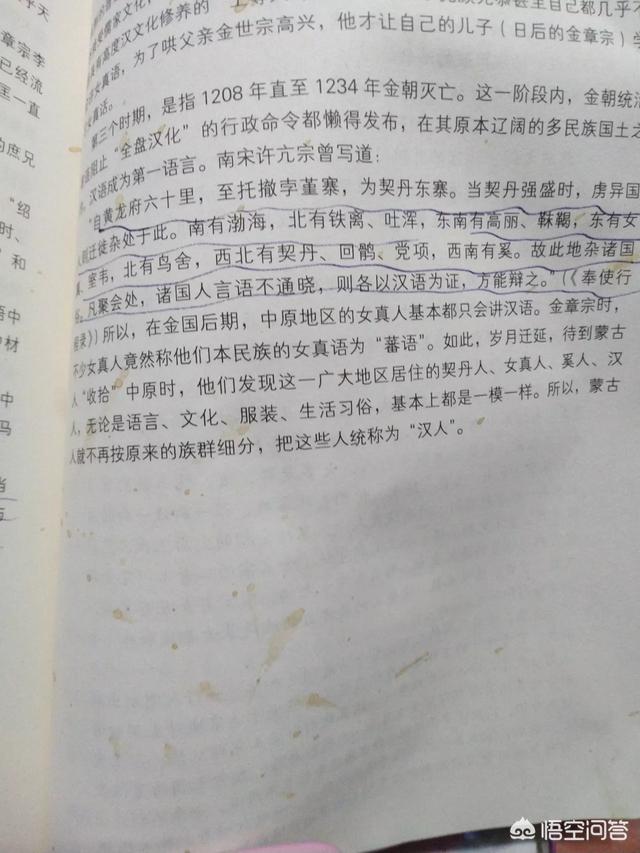 高度汉文化修养的
女真语，为了哄父亲金世宗高兴，他才让自己的儿子（日后的金章宗）学
真话。
第三个时期，是指1208年直至1234年金朝灭亡。这一阶段内，金朝统
阻止“全盘汉化”的行政命令都懒得发布，在其原本辽阔的多民族国土之
，汉语成为第一语言。南宋许亢宗曾写道：
“自黄龙府六十里，至托撤孛堇寨，为契丹东寨。当契丹强盛时，虏异国
人则迁徙杂处于此。南有渤海，北有铁离、吐浑，东南有高丽、靺鞨，东有女
真、室韦，北有鸟舍，西北有契丹、回鹘、党项，西南有奚。故此地杂诸国
俗。凡聚会处，诸国人言语不通晓，则各以汉语为证，方能辩之。”（《奉使行
程录》）所以，在金国后期，中原地区的女真人基本都只会讲汉语。金章宗时，
不少女真人竟然称他们本民族的女真语为“蕃语”。如此，岁月迁延，待到蒙古
人“收拾”中原时，他们发现这一广大地区居住的契丹人、女真人、奚人、汉
人，无论是语言、文化、服装、生活习俗，基本上都是一模一样。所以，蒙古
人就不再按原来的族群细分，把这些人统称为“汉人”。
乎天
章宗李
已经流
匡一直
的庶兄
“绍
时、
”和
语中
中材
中
马
当
悟空问答